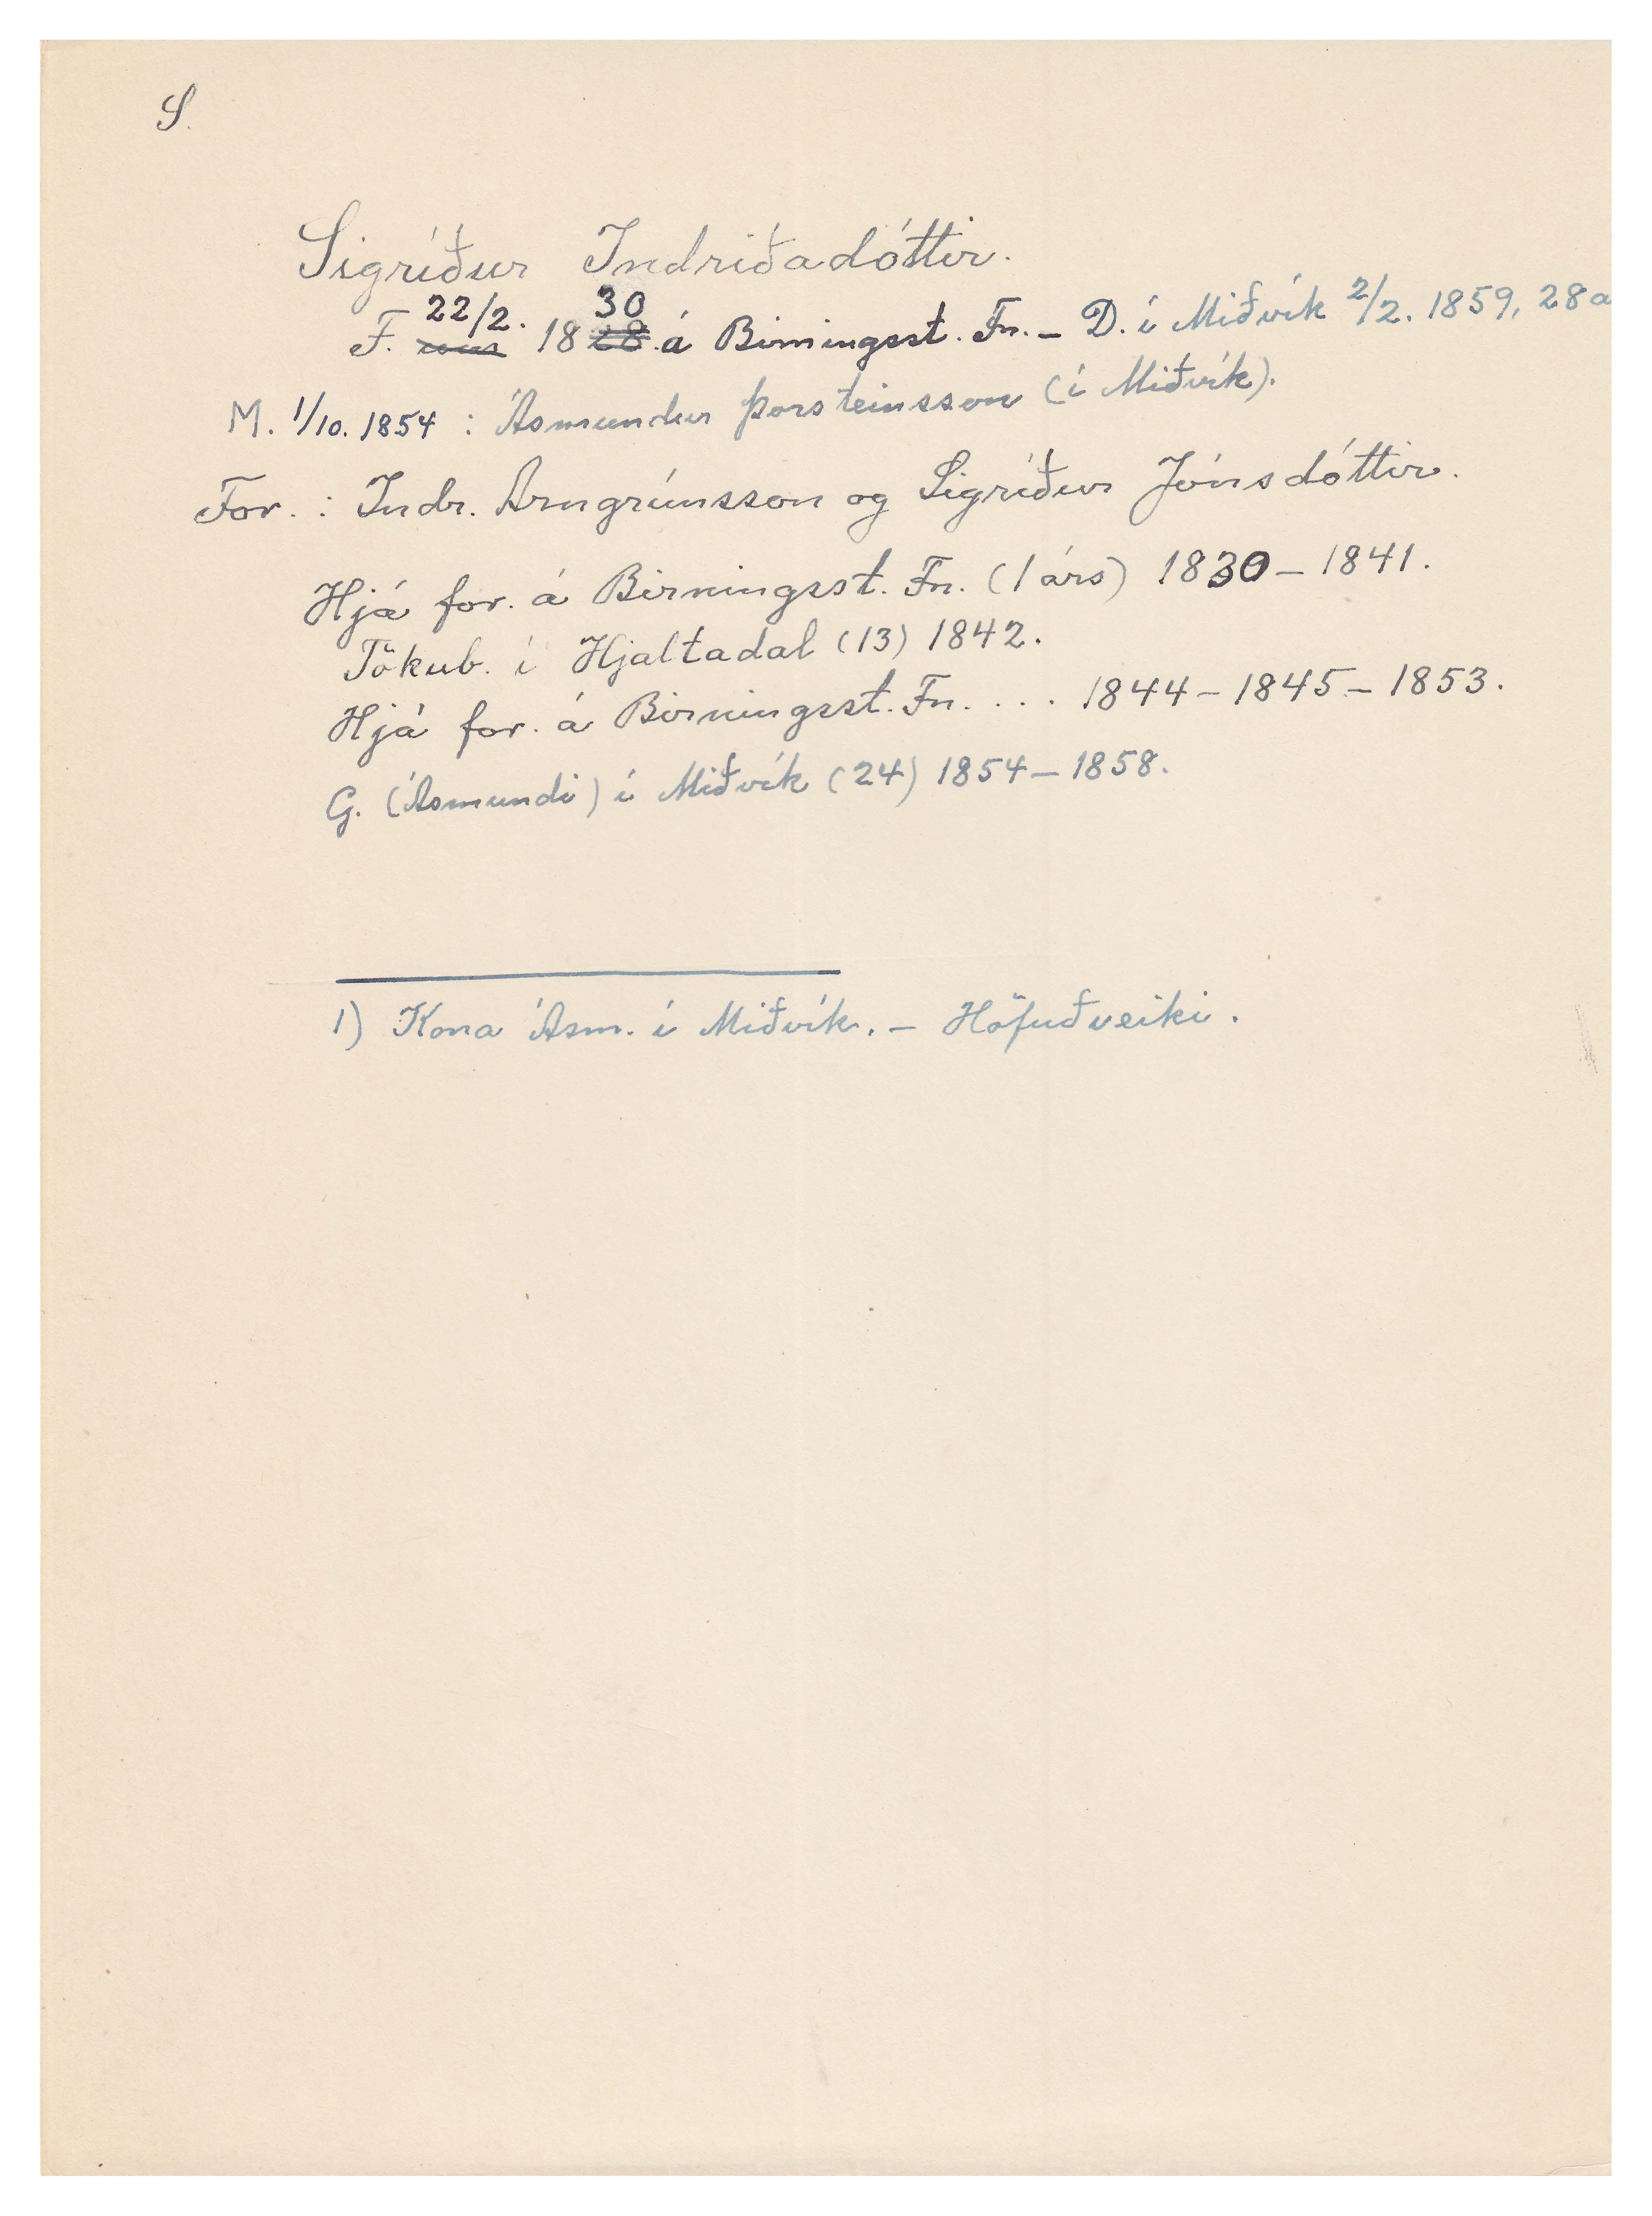 S.
Sigríður Indriðadóttir.
F. 22/2. 1830 á Birningsst. Fn. – D. í Miðvík 2/2. 1859, 28 a
M. 1/10. 1854 : Ásmundur Þorsteinsson (í Miðvík).
For. : Indr. Arngrímsson og Sigríður Jónsdóttir.
Hjá for. á Birningsst. Fn. (1 árs) 1830 – 1841.
Tökub. í Hjaltadal (13) 1842.
Hjá for. á Birningsst. Fn. . . . 1844 – 1845 – 1853.
G. (Ásmundi) í Miðvík (24) 1854 – 1858.
1) Kona Ásm. í Miðvík. – Höfuðveiki.